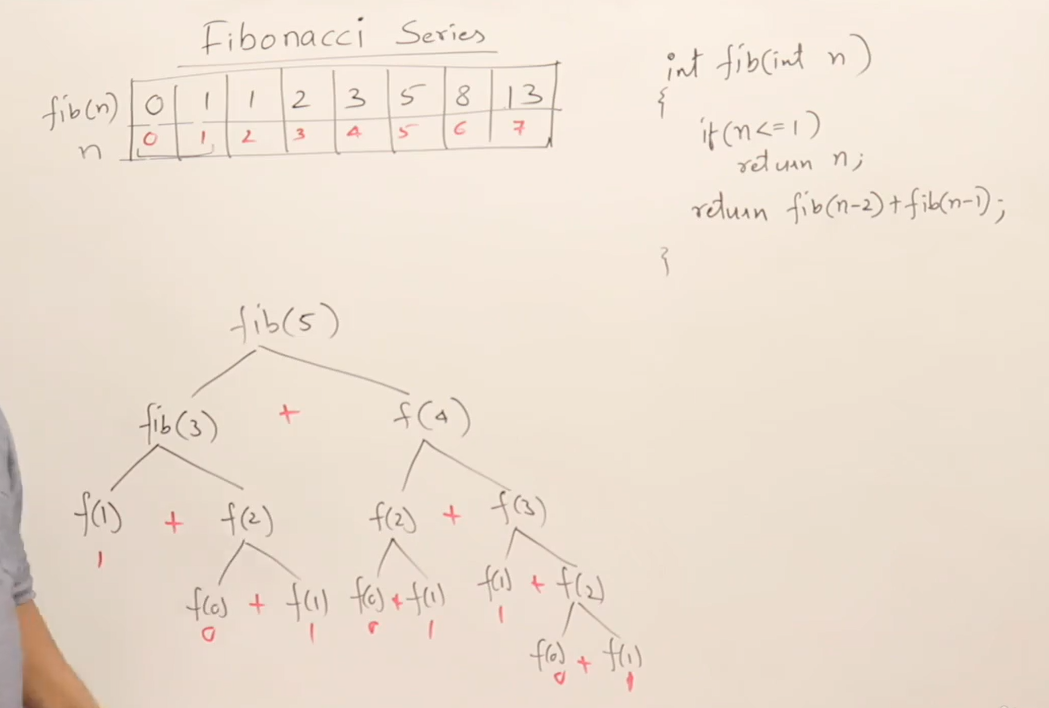 Fibonacci Series
fib(n) 0 1 1 2 3 5 8 13
n 0 1 2 3 4 5 6 7
int fib(int n)
{
if(n<=1)
return n;
return fib(n-2)+fib(n-1);
}
fib(5)
fib(3) + f(4)
f(1) + f(2) f(2) + f(3)
1
f(0) + f(1) f(0) + f(1) f(1) + f(2)
0 1 0 1 1
f(0) + f(1)
0 1